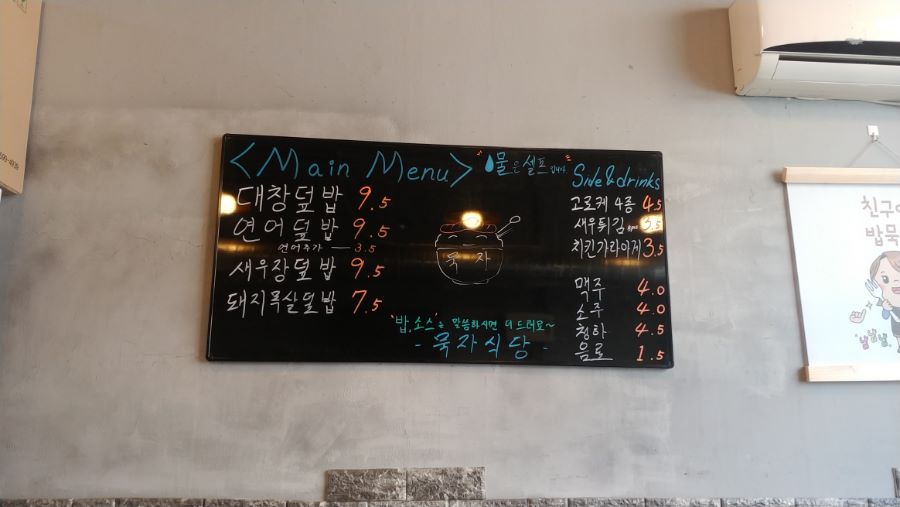 <Main Menu>
대창덮밥 9.5
연어덮밥 9.5
연어추가 — 3.5
새우장덮밥 9.5
돼지목살덮밥 7.5
물은 셀프입니다
묵자
"밥, 소스"는 말씀하시면 더 드려요~
- 묵자식당 -
Side & drinks
고로케 4종 4.5
새우튀김 3.5
치킨가라아게 3.5
맥주 4.0
소주 4.0
청하 4.5
음료 1.5
친구야
밥묵
냠냠냠